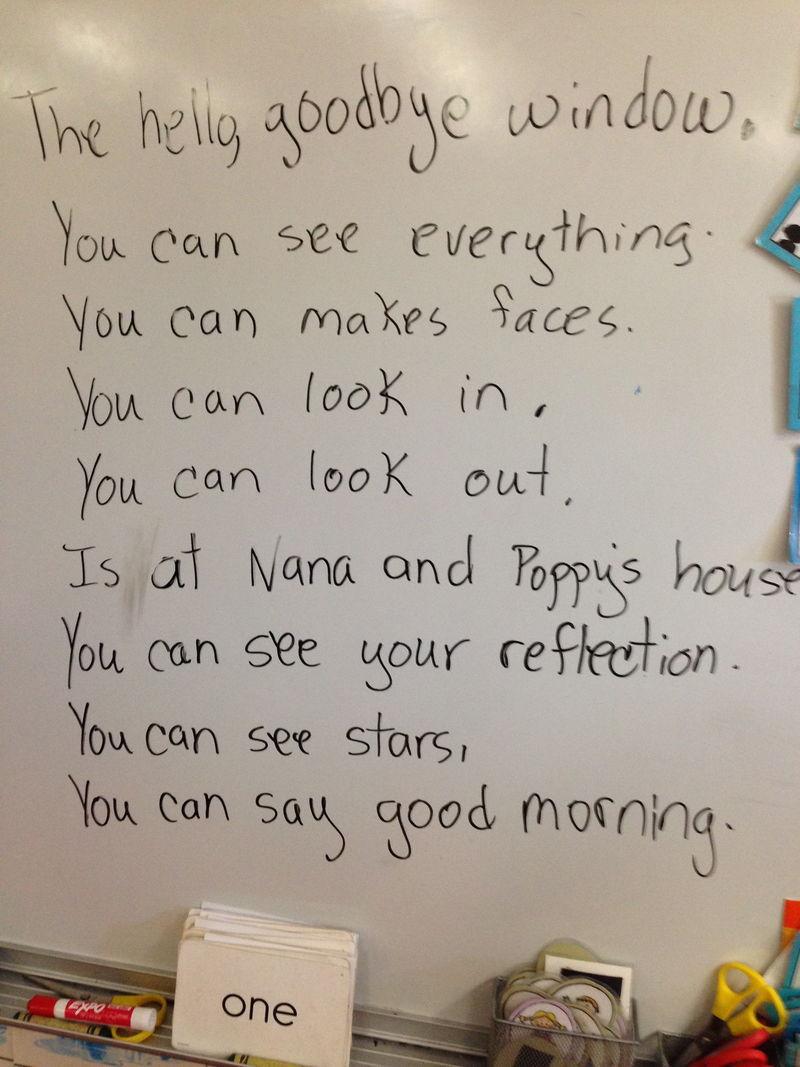 The hello, goodbye window.
You can see everything.
You can makes faces.
You can look in.
You can look out.
Is at Nana and Poppy's house
You can see your reflection.
You can see stars,
You can say good morning.
EXPO
one